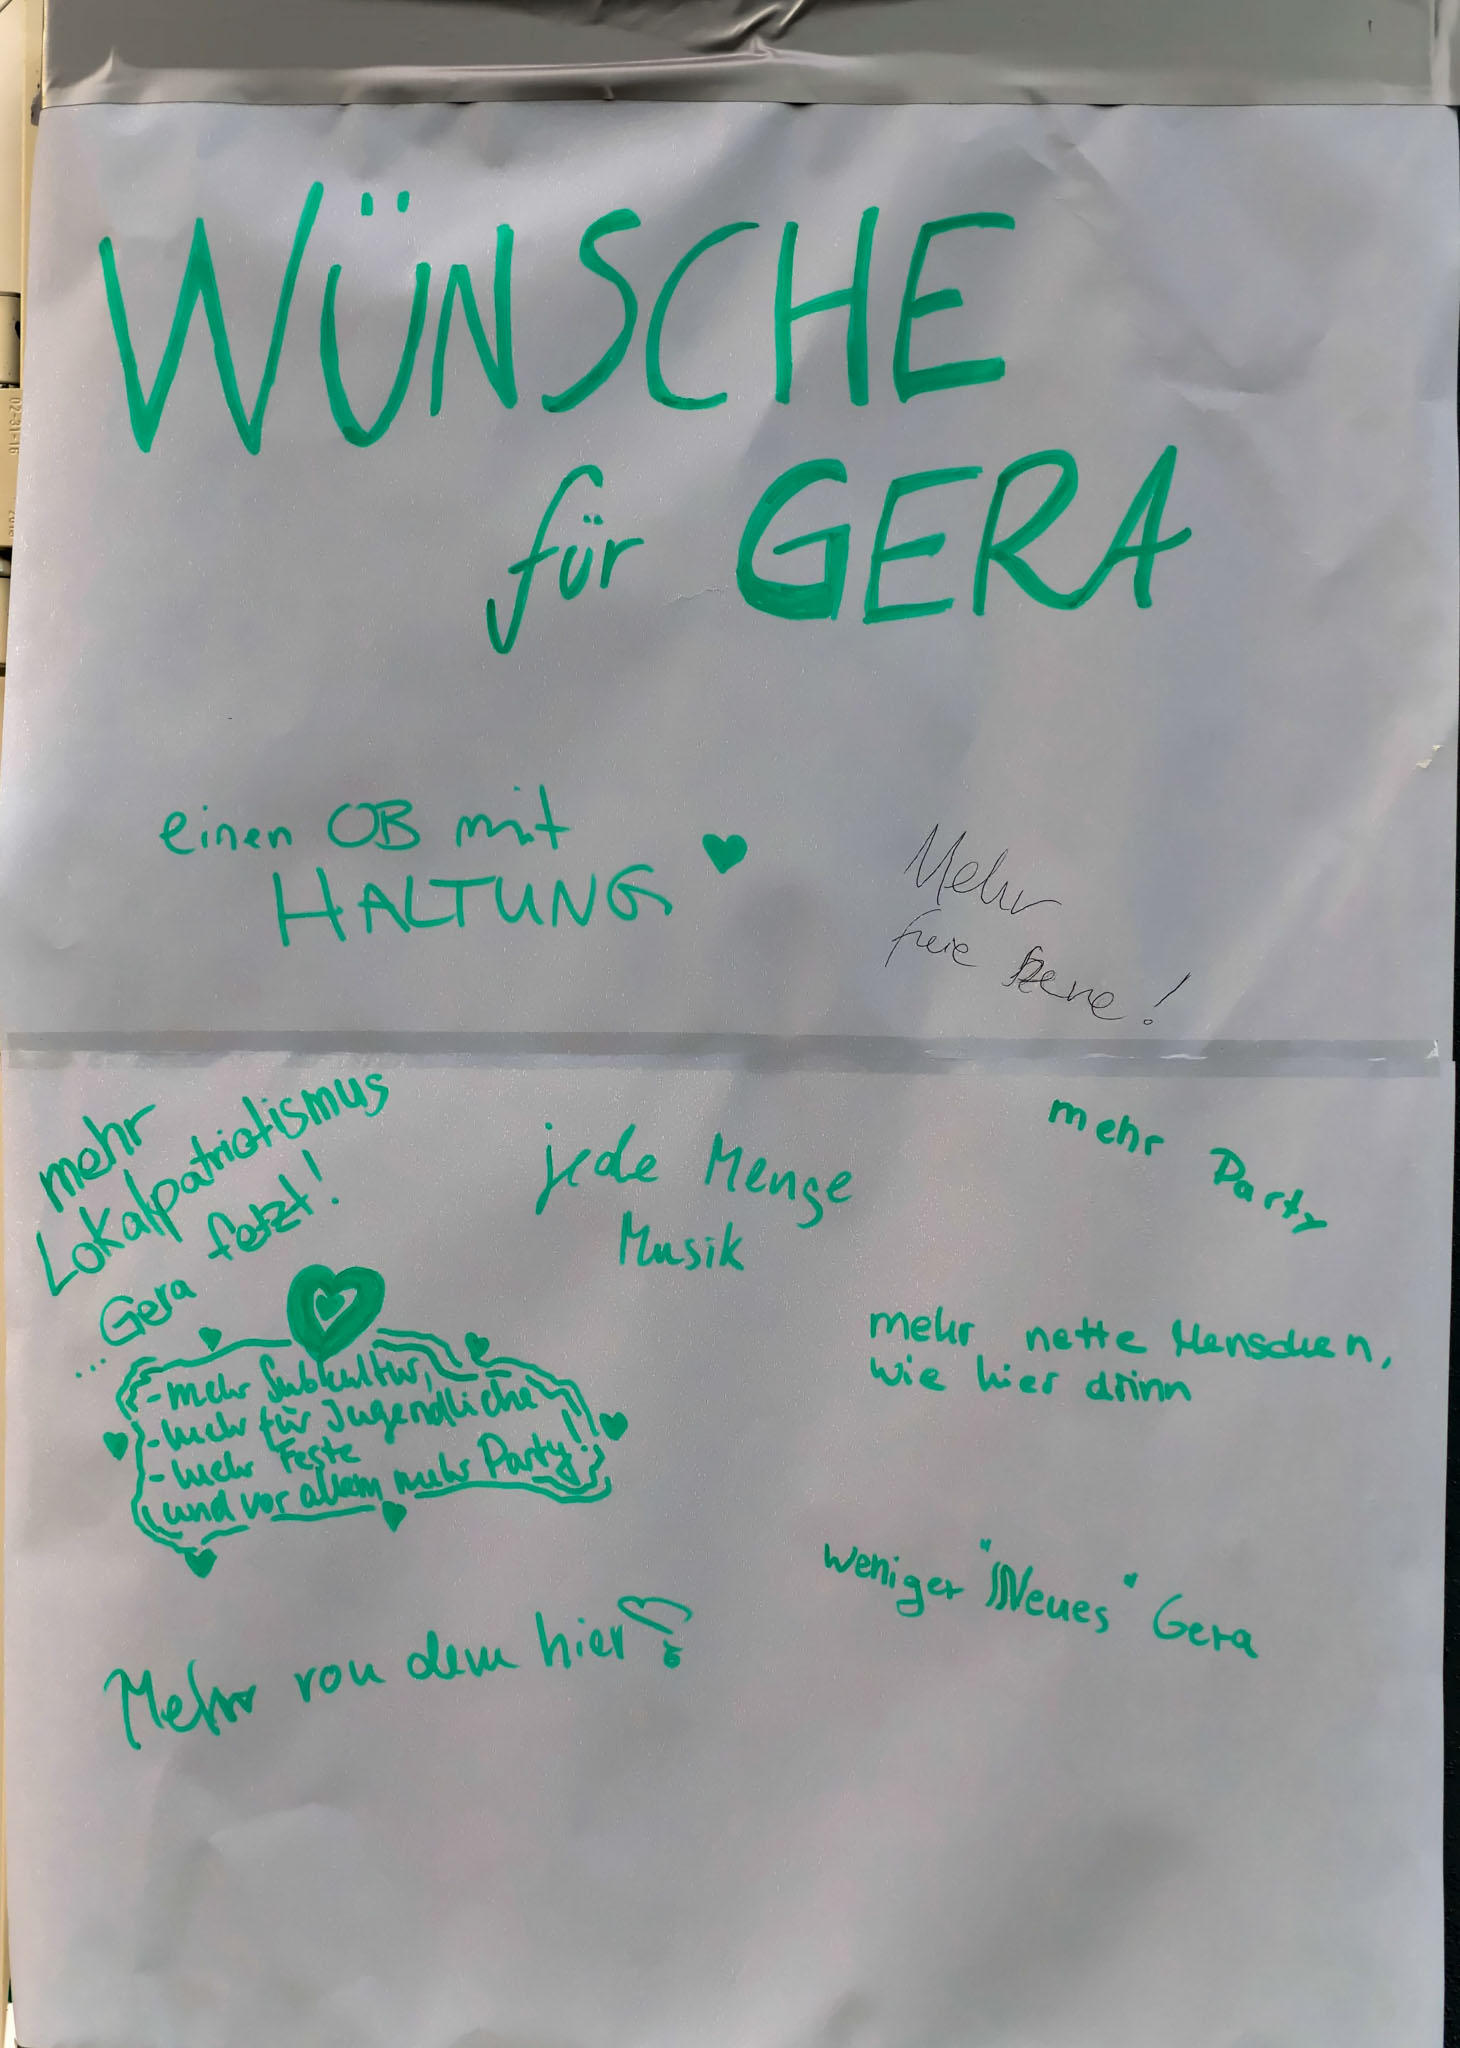 WÜNSCHE
für GERA
einen OB mit
HALTUNG
Mehr
freie Szene!
mehr
Lokalpatriotismus
... Gera fetzt!
jede Menge
Musik
mehr Party
- mehr Subkultur,
- mehr für Jugendliche
- mehr Feste
und vor allem mehr Party!
mehr nette Menschen,
wie hier drinn
weniger "Neues" Gera
Mehr von dem hier